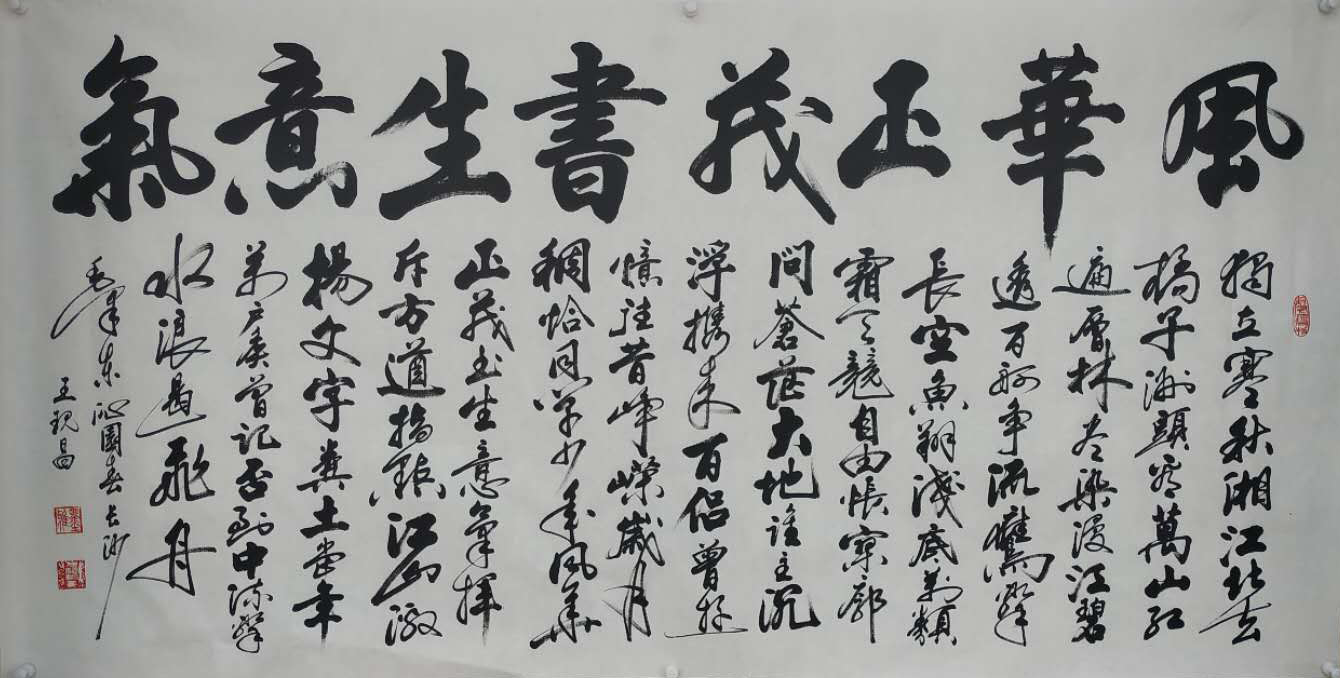 風華正茂書生意氣
獨立寒秋湘江北去
橘子洲頭看萬山紅
遍層林盡染漫江碧
透百舸爭流鷹擊
長空魚翔淺底萬類
霜天競自由悵寥廓
問蒼茫大地誰主沉
浮攜來百侶曾遊
憶往昔崢嶸歲月
稠恰同學少年風華
正茂書生意氣揮
斥方遒指點江山激
揚文字糞土當年
萬戶侯曾記否到中流擊
水浪遏飛舟
毛澤東沁園春長沙
王現昌